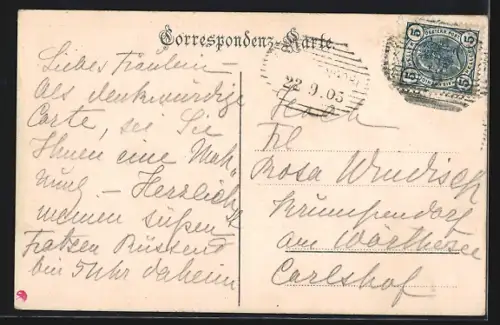 Correspondenz-Karte
Liebes Fräulein –
Als denkwürdige
Carte, sei Sie
Ihnen eine Mah-
nung – Herzlichst
meinen süßen
Fratzen Küssend
bin 5 Uhr daheim
22.9.05
5 5
5 5
Hoch
Frl
Rosa Windisch
Krumpendorf
am Wörthersee
Carlshof